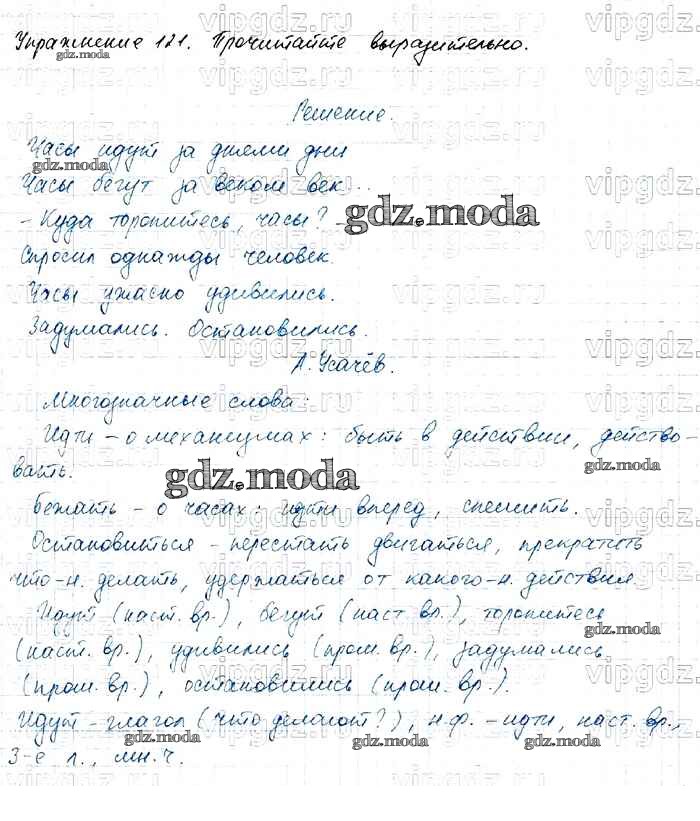 Упражнение 121. Прочитайте выразительно.
gdz.moda
Решение.
Часы идут за днями дни
gdz.moda
Часы бегут за веком век...
- Куда торопитесь, часы? -
gdz.moda
Спросил однажды человек.
Часы ужасно удивились.
Задумались. Остановились.
А. Усачёв.
Многозначные слова:
Идти - о механизмах: быть в действии, действо-
вать.
gdz.moda
gdz.moda
Бежать - о часах: идти вперед, спешить.
Остановиться - перестать двигаться, прекратить
что-н. делать, удержаться от какого-н. действия.
Идут (наст. вр.), бегут (наст. вр.), торопитесь
gdz.moda
(наст. вр.), удивились (прош. вр.), задумались
(прош. вр.), остановились (прош. вр.).
Идут - глагол (что делают?), н.ф. - идти, наст. вр.,
gdz.moda gdz.moda gdz.moda
3-е л., мн. ч.
vipgdz.ru